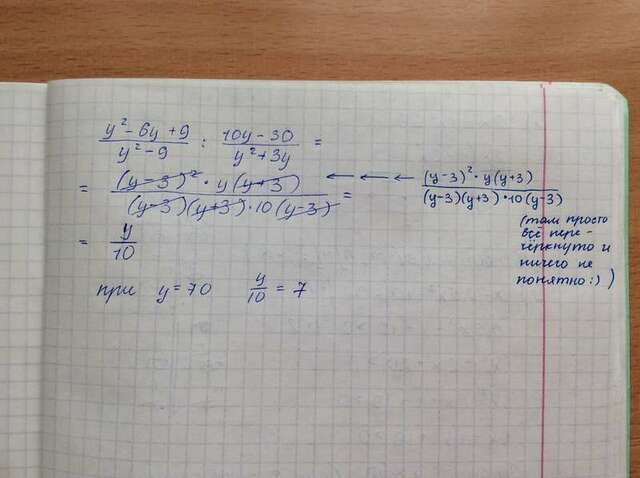 y² - 6y + 9 / y² - 9 : 10y - 30 / y² + 3y =
= (y - 3)² · y (y + 3) / (y - 3)(y + 3) · 10 (y - 3) =
← ← ← (y - 3)² · y (y + 3) / (y - 3)(y + 3) · 10 (y - 3)
(там просто
всё пере-
чёркнуто и
ничего не
понятно :) )
= y / 10
при y = 70 y / 10 = 7